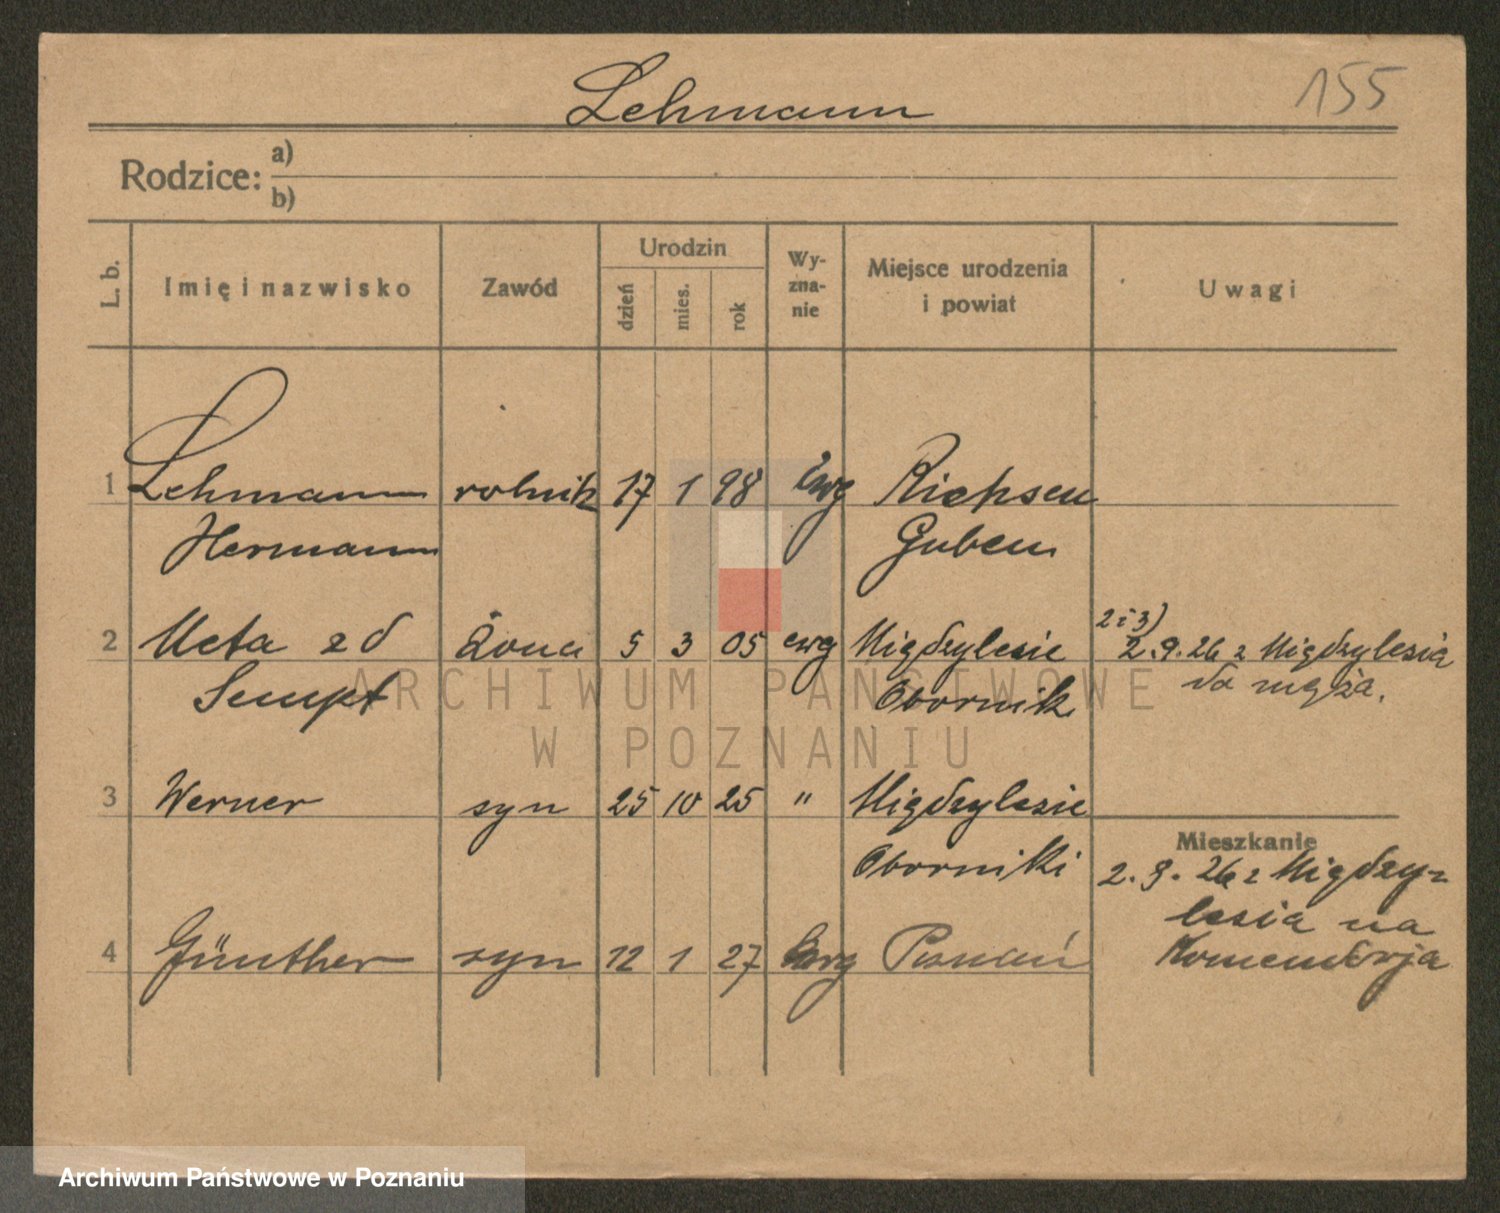 Lehmann 155
Rodzice: a)
b)
L. b. Imię i nazwisko Zawód Urodzin dzień mies. rok Wyznanie Miejsce urodzenia i powiat Uwagi
1 Lehmann rolnik 17 1 98 Ewg Riehsen
Hermann Guben
2 Meta zd Żona 5 3 05 ewg Międzylesie 2 i 3) 2.9.26 z Międzylesia
Sempf Obornik do męża.
ARCHIWUM PAŃSTWOWE
W POZNANIU
3 Werner syn 25 10 25 " Międzylesie
Mieszkanie
Oborniki 2.9.26 z Między-
lesia na
4 Günther syn 12 1 27 Ewg Poznań Komendorja
Archiwum Państwowe w Poznaniu